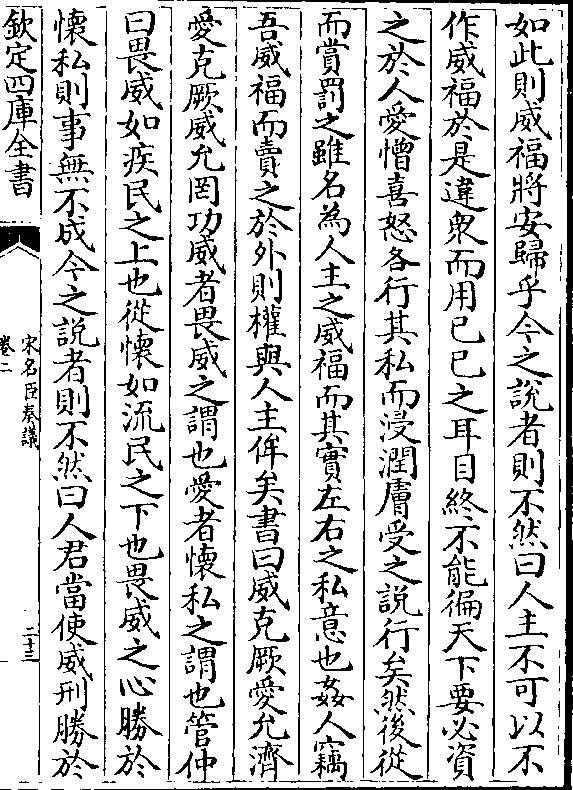 如此則威福將安歸乎今之說者則不然曰人主不可以不
作威福於是違衆而用已已之耳目終不能徧天下要必資
之於人愛憎喜怒各行其私而浸潤膚受之說行矣然後從
而賞罰之雖名為人主之威福而其實左右之私意也姦人竊
吾威福而賣之於外則權與人主侔矣書曰威克厥愛允濟
愛克厥威允罔功威者畏威之謂也愛者懷私之謂也管仲
曰畏威如疾民之上也從懷如流民之下也畏威之心勝於
懷私則事無不成今之說者則不然曰人君當使威刑勝於
欽定四庫全書
宋名臣奏議
卷二
二十三